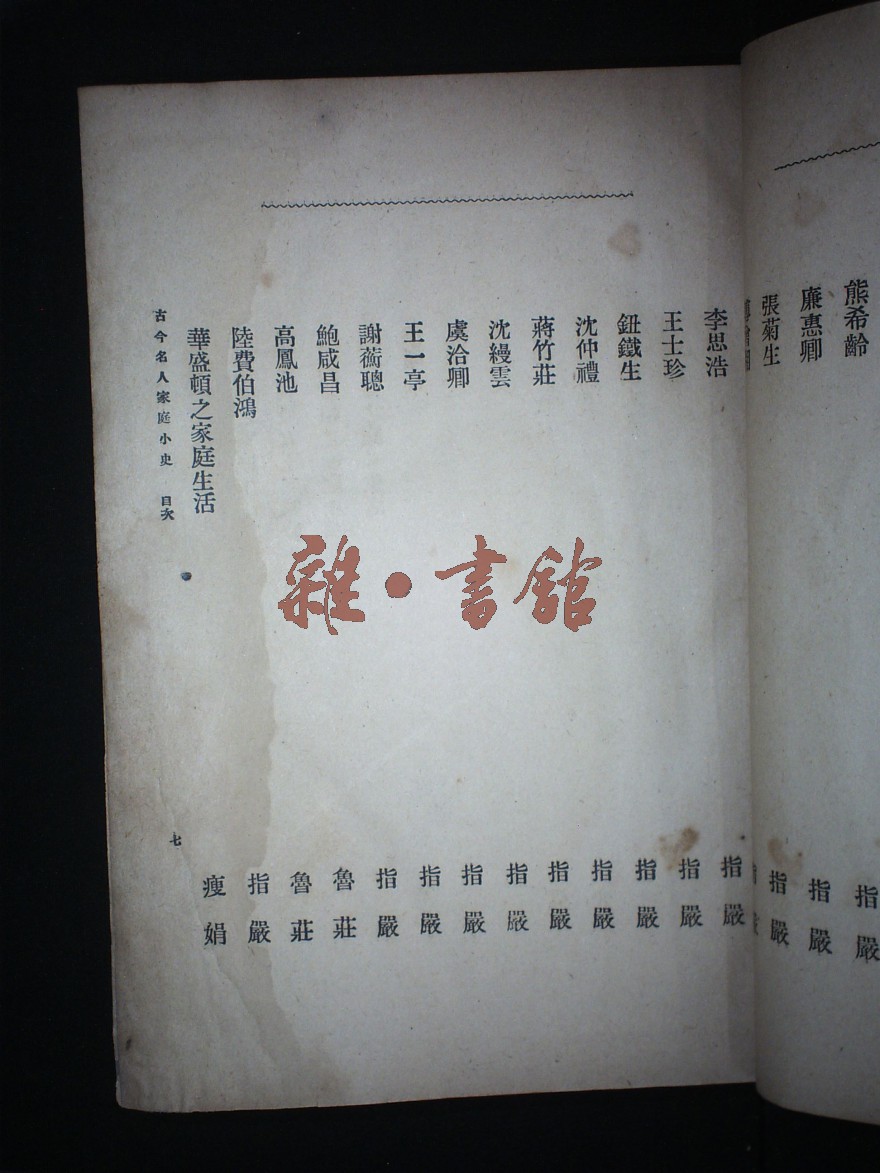 熊希齡 指嚴
廉惠卿 指嚴
張菊生 指嚴
李思浩 指嚴
王士珍 指嚴
鈕鐵生 指嚴
沈仲禮 指嚴
蔣竹莊 指嚴
沈縵雲 指嚴
虞洽卿 指嚴
王一亭 指嚴
謝蘅牕 指嚴
鮑咸昌 魯莊
高鳳池 魯莊
陸費伯鴻 指嚴
華盛頓之家庭生活 瘦娟
古今名人家庭小史 目次
七
雜·書館